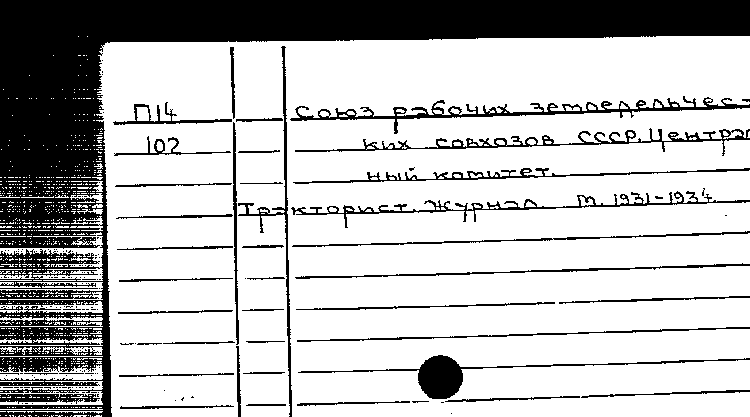 П14 Союз рабочих земледельчес-
102 ких совхозов СССР. Централ
ный комитет.
Тракторист. Журнал М. 1931-1934.